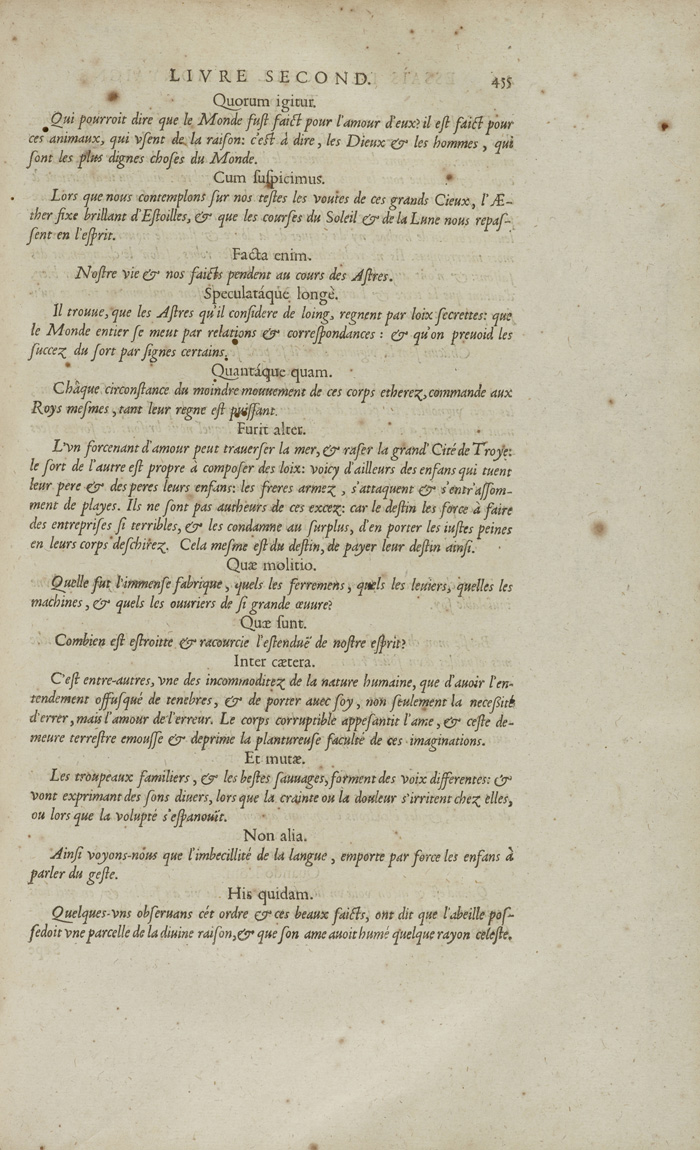 LIVRE SECOND. 455
Quorum igitur.
Qui pourroit dire que le Monde fust faict pour l'amour d'eux? il est faict pour
ces animaux, qui vsent de la raison: c'est à dire, les Dieux & les hommes, qui
sont les plus dignes choses du Monde.
Cum suspicimus.
Lors que nous contemplons sur nos testes les voutes de ces grands Cieux, l'Æ-
ther fixe brillant d'Estoilles, & que les courses du Soleil & de la Lune nous repas-
sent en l'esprit.
Facta enim.
Nostre vie & nos faicts pendent au cours des Astres.
Speculatáque longè.
Il trouue, que les Astres qu'il considere de loing, regnent par loix secrettes: que
le Monde entier se meut par relations & correspondances: & qu'on preuoid les
succez du sort par signes certains.
Quantáque quam.
Châque circonstance du moindre mouuement de ces corps etherez, commande aux
Roys mesmes, tant leur regne est puissant.
Furit alter.
L'vn forcenant d'amour peut trauerser la mer, & raser la grand' Cité de Troye:
le sort de l'autre est propre à composer des loix: voicy d'ailleurs des enfans qui tuent
leur pere & des peres leurs enfans: les freres armez, s'attaquent & s'entr'assom-
ment de playes. Ils ne sont pas autheurs de ces excez: car le destin les force à faire
des entreprises si terribles, & les condamne au surplus, d'en porter les iustes peines
en leurs corps deschirez. Cela mesme est du destin, de payer leur destin ainsi.
Quæ molitio.
Quelle fut l'immense fabrique, quels les ferremens, quels les leuiers, quelles les
machines, & quels les ouuriers de si grande œuure?
Quæ sunt.
Combien est estroitte & racourcie l'estenduë de nostre esprit?
Inter cætera.
C'est entre-autres, vne des incommoditez de la nature humaine, que d'auoir l'en-
tendement offusqué de tenebres, & de porter auec soy, non seulement la necessité
d'errer, mais l'amour de l'erreur. Le corps corruptible appesantit l'ame, & ceste de-
meure terrestre emousse & deprime la plantureuse faculté de ces imaginations.
Et mutæ.
Les troupeaux familiers, & les bestes sauuages, forment des voix differentes: &
vont exprimant des sons diuers, lors que la crainte ou la douleur s'irritent chez elles,
ou lors que la volupté s'espanouït.
Non alia.
Ainsi voyons-nous que l'imbecillité de la langue, emporte par force les enfans à
parler du geste.
His quidam.
Quelques-vns obseruans cét ordre & ces beaux faicts, ont dit que l'abeille pos-
sedoit vne parcelle de la diuine raison, & que son ame auoit humé quelque rayon celeste.